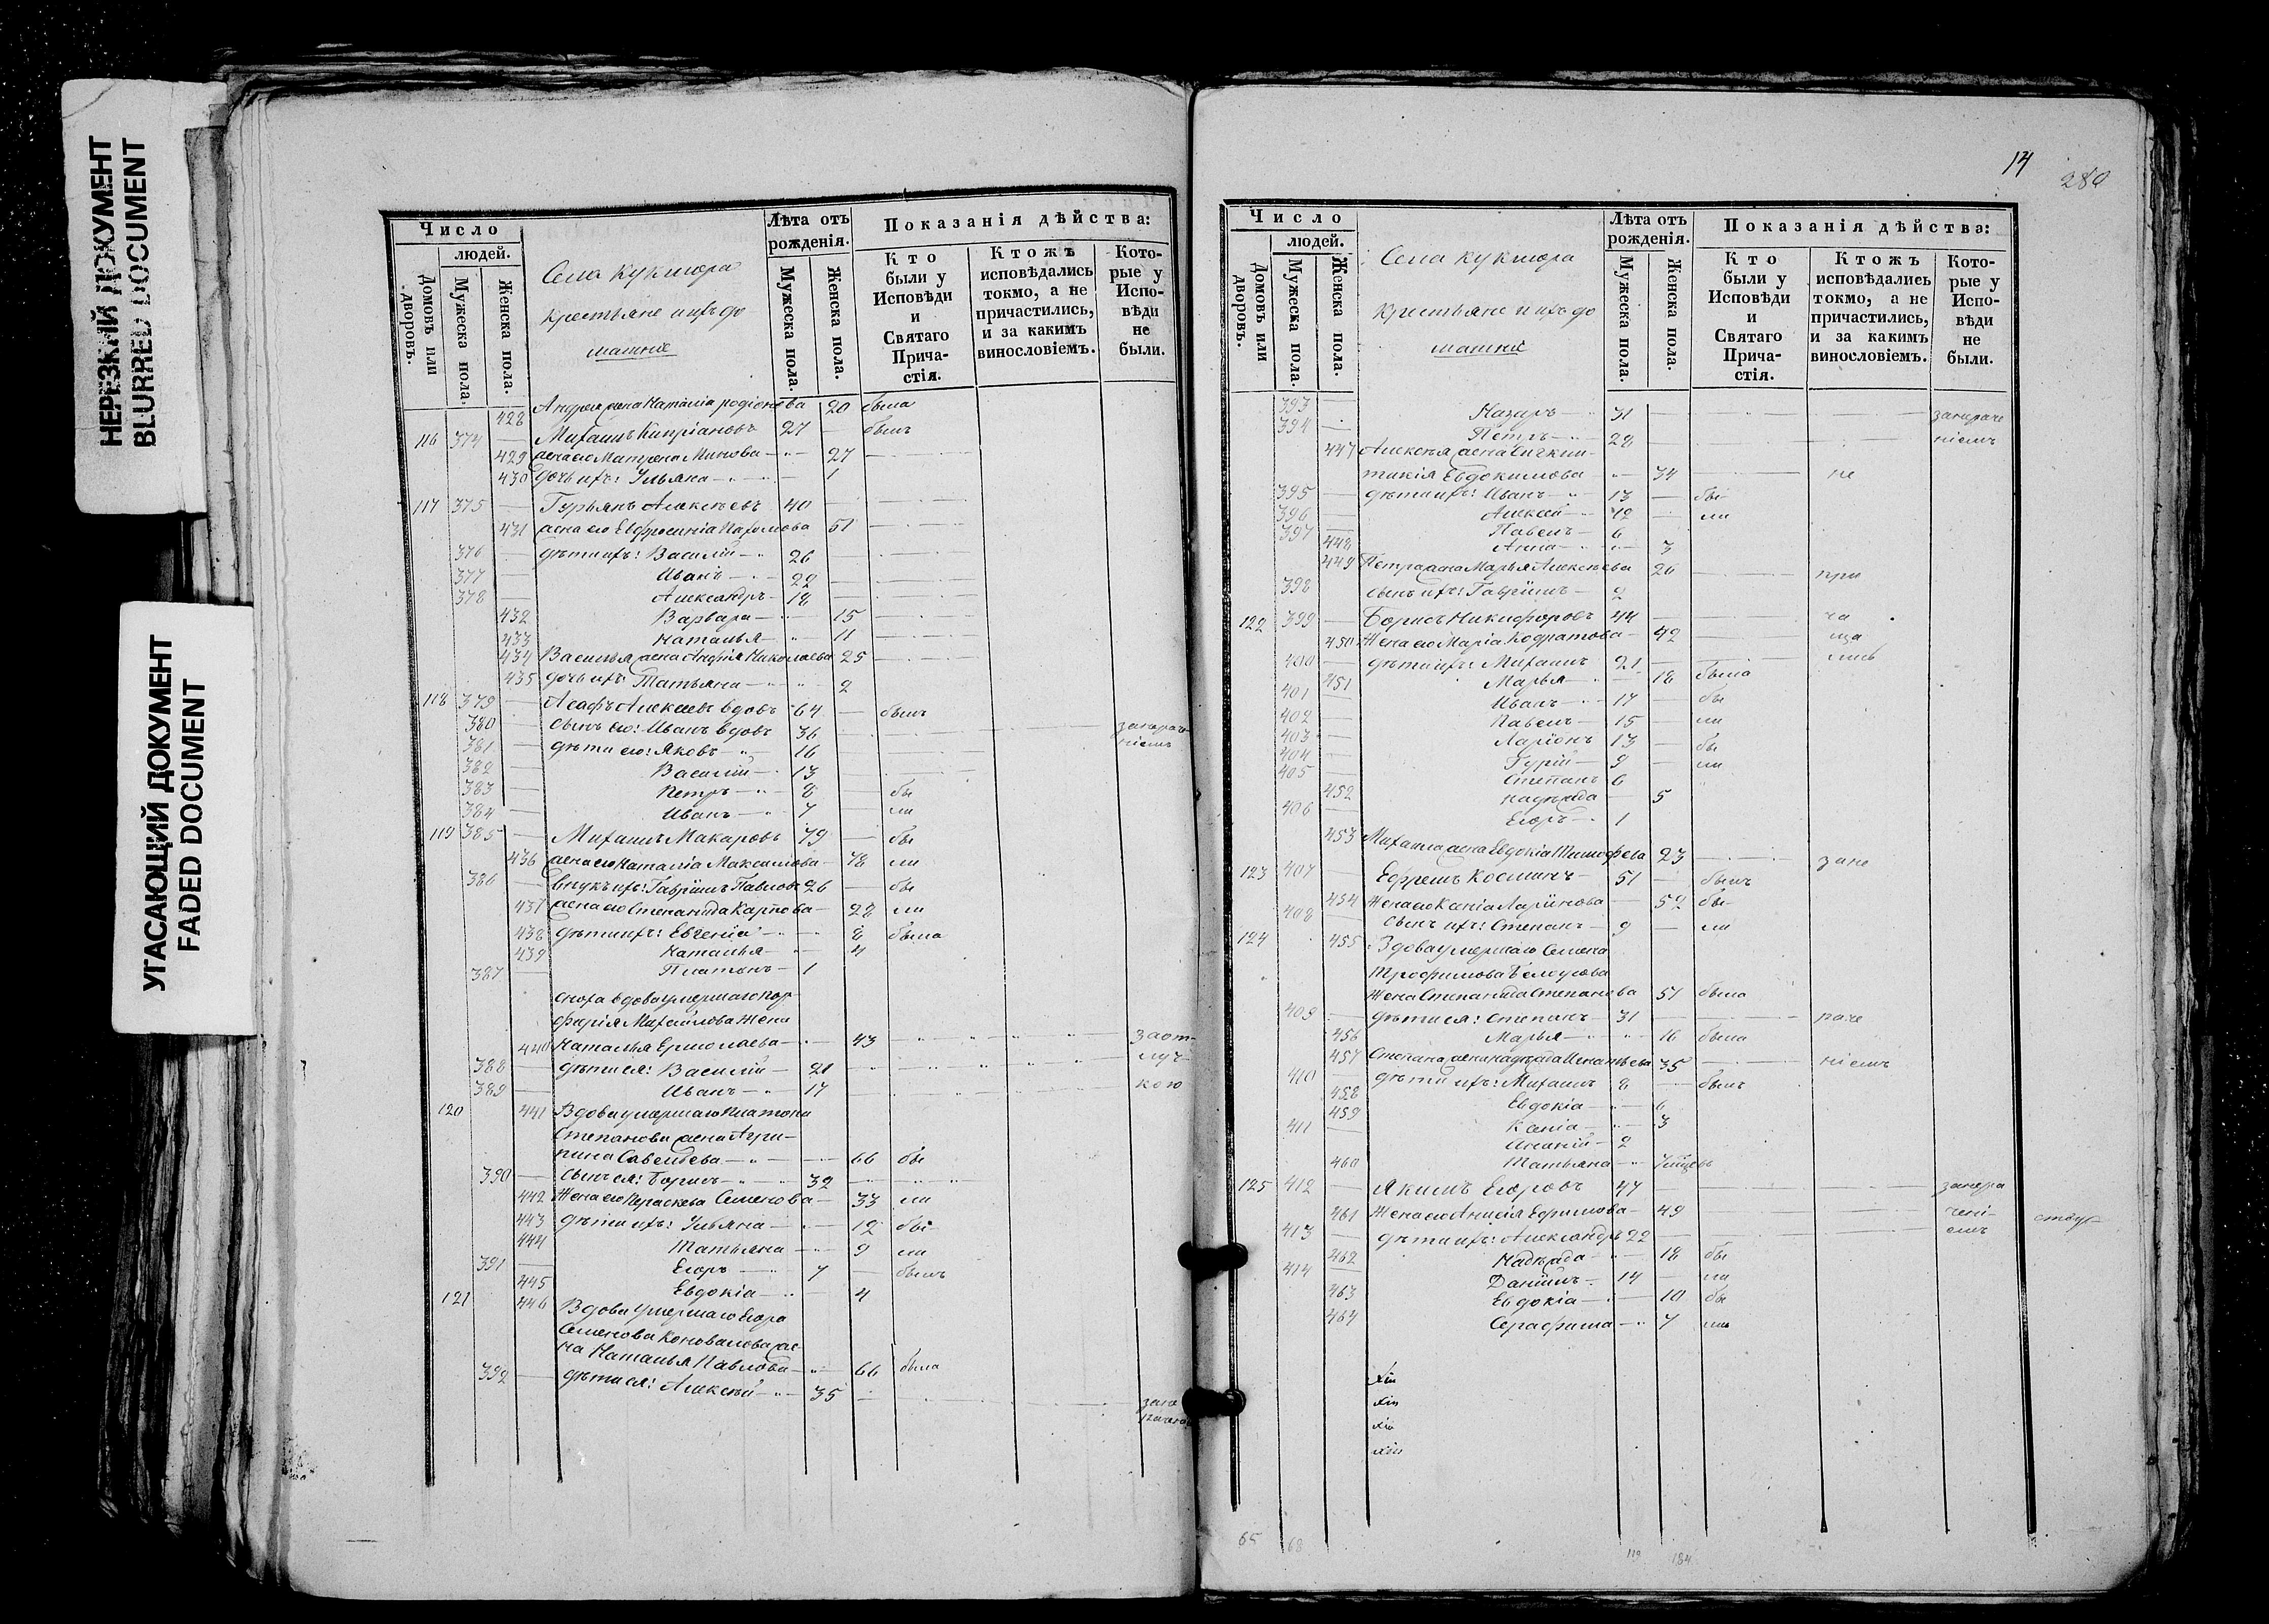 НЕРЕЗКИЙ ДОКУМЕНТ
BLURRED DOCUMENT
УГАСАЮЩИЙ ДОКУМЕНТ
FADED DOCUMENT
Число
людей.
Домовъ или дворовъ.
Мужеска пола.
Женска пола.
Села Кукмора
крестьяне и ихъ до
машніе
Лѣта отъ рожденія.
Мужеска пола.
Женска пола.
Показанія дѣйства:
Кто были у Исповѣди и Святаго Прича-стія.
Ктожъ исповѣдались токмо, а не причастились, и за какимъ винословіемъ.
Кото-рые у Испо-вѣди не были.
428 Андрея жена Наталіа родіонова 20 была
116 374 Михаилъ Кипріановъ 27 былъ
429 жена его Матрена Минова 27
430 дочь ихъ: Ульяна 1
117 375 Гурьянъ Алексѣевъ 40
431 жена его Евфросинія Пахомова 51
376 дѣти ихъ: Василій 26
377 Иванъ 22
378 Александръ 18
432 Варвара 15
433 Наталья 11
434 Василья жена Николаева 25
435 дочь ихъ: Татьяна 2
118 379 Алексѣевъ вдовъ 64 былъ
380 сынъ его: Иванъ вдовъ 36
381 дѣти его: Яковъ 16
382 Василій 13
383 Петръ 8 бы
384 Иванъ 7 ли
119 385 Михаилъ Макаровъ 79 бы
436 жена его Наталіа Максимова 78 ли
386 внукъ ихъ: Гавріилъ Павловъ 26 бы
437 жена его Степанида Карпова 28 ли
438 дѣти ихъ: Евгенія 8 была
439 Наталья 4
387 Платонъ 1
сноха вдова умершаго Пор-
фирія Михайлова жена
440 Наталья Ермолаева 43 за от-
388 дѣти ея: Василій 21 луч-
389 Иванъ 17 кою
120 441 Вдова умершаго Платона
Степанова жена Агри-
пина Савельева 66 бы
390 сынъ ея: Борисъ 32
442 Жена его Параскева Семенова 33 ли
443 дѣти ихъ: Ульяна 12 бы
444 Татьяна 9 ли
391 Егоръ 7 былъ
445 Евдокіа 4
121 446 Вдова умершаго Егора
Семенова Коновалова же-
на Наталья Павлова 66 была
392 дѣти ея: Алексѣй 35
14
280
Число
людей.
Домовъ или дворовъ.
Мужеска пола.
Женска пола.
Села Кукмора
крестьяне и ихъ до
машніе
Лѣта отъ рожденія.
Мужеска пола.
Женска пола.
Показанія дѣйства:
Кто были у Исповѣди и Святаго Прича-стія.
Ктожъ исповѣдались токмо, а не причастились, и за какимъ винословіемъ.
Кото-рые у Испо-вѣди не были.
393 Назаръ 31
394 Петръ 28 ніемъ
447 Алексѣя жена
Евдокимова 34 не
395 дѣти ихъ: Иванъ 13 бы-
396 Алексѣй 12 ли
397 Павелъ 6
448 Анна 3
449 Петра жена Марья Алексѣева 26 при
398 сынъ ихъ: Гавріилъ 2
122 399 Борисъ Никифоровъ 44 ча
450 Жена его Маріа Кодратова 42 ща
400 дѣти ихъ: Михаилъ 21 лись
451 Марья 18 была
401 Иванъ 17 бы
402 Павелъ 15 ли
403 Ларіонъ 13 бы
404 Гурій 9 ли
405 Степанъ 6
452 Надежда 5
406 Егоръ 1
453 Михаила жена Евдокіа Тимофеева 23
123 407 Ефремъ Косминъ 51 былъ
454 Жена его Ксеніа Ларіонова 52 бы-
408 Сынъ ихъ: Степанъ 9 ли
124 455 Вдова умершаго Семена
Трофимова Белоусова
Жена Степанида Степанова 51 была
409 дѣти ея: Степанъ 31
456 Марья 16 была
457 Степана жена Надежда Игнатьева 35 ніемъ
410 дѣти ихъ: Михаилъ 8 былъ
458 Евдокіа 6
459 Ксеніа 3
411 Ананій 2
460 Татьяна
125 412 Якимъ Егоровъ 47
461 Жена его Анисія Ефимова 49
413 дѣти ихъ: Александръ 22
462 Надежда 18 бы
414 Даніилъ 14 ли
463 Евдокіа 10 бы
464 Серафима 7 ли
65 68 119 184